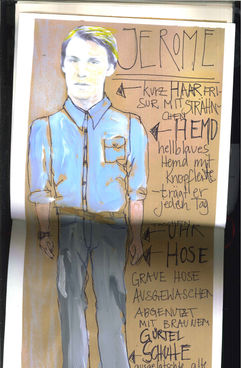 JEROME
KURZ HAAR FRI-
SUR MIT STRÄHN-
CHEN
HEMD
hellblaues
Hemd mit
Knopfleiste
trägt er
jeden Tag
UHR
HOSE
GRAUE HOSE
AUSGEWASCHEN
ABGENUTZT
MIT BRAUNEM
GÜRTEL
SCHUHE
ausgelatschte alte